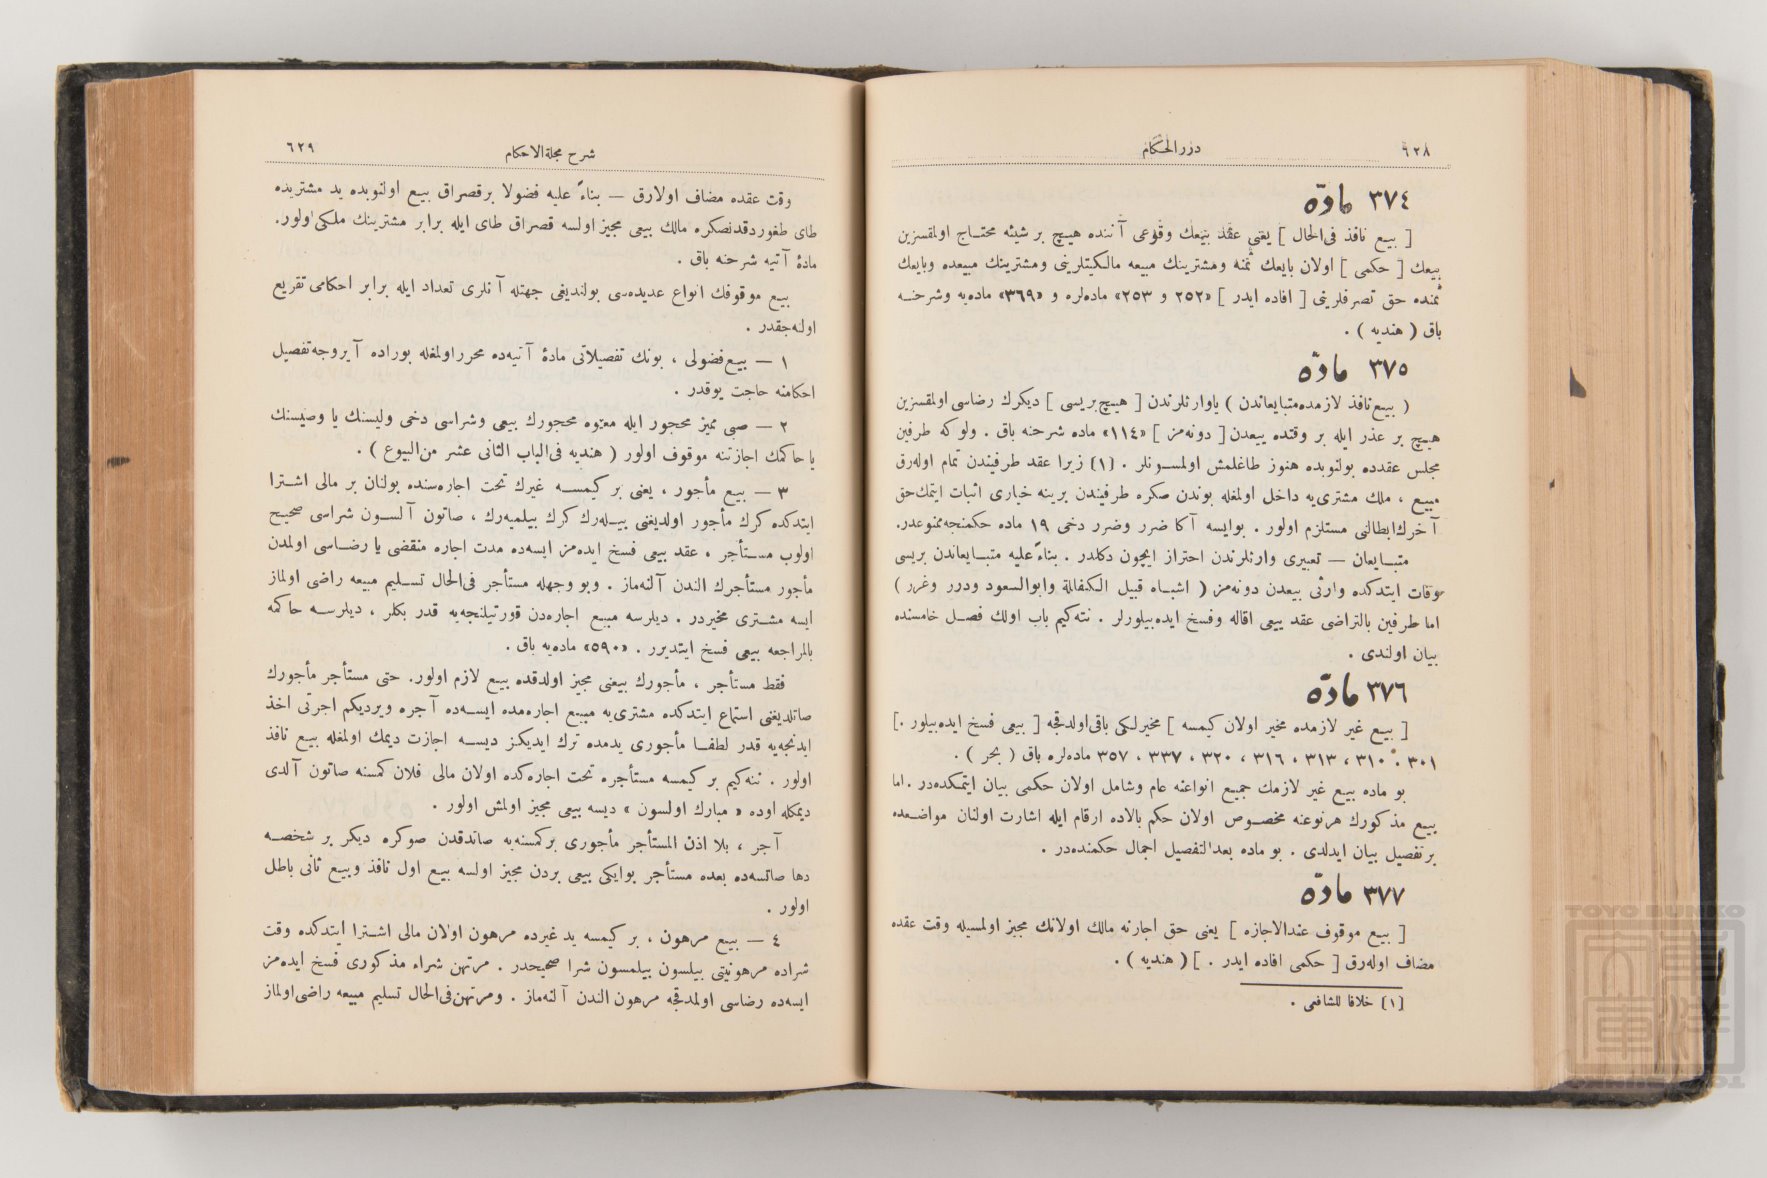 ٦٢٨
دررالحكام
٣٧٤ مادّه
[ بيع نافذ فى الحال ] يعنى عقد بيعك وقوعى آننده هيچ بر شيئه محتاج اولمقسزين
بيعك [ حكمى ] اولان بايعك ثمنه ومشترينك مبيعه مالكيتلرينى ومشترينك مبيعده وبايعك
ثمنده حق تصرفلرينى [ افاده ايدر ] «٢٥٢ و ٢٥٣» ماده‌لره و «٣٦٩» ماده‌يه وشرحنه
باق ( هنديه ) .
٣٧٥ مادّه
( بيع نافذ لازمده متبايعاندن ) ياوارثلرندن [ هيچ بريسى ] ديكرك رضاسى اولمقسزين
هيچ بر عذر ايله بر وقتده بيعدن [ دونه‌مز ] «١١٤» ماده شرحنه باق . ولوكه طرفين
مجلس عقدده بولنوبده هنوز طاغلمش اولمسونلر . [١] زيرا عقد طرفيندن تمام اوله‌رق
مبيع ، ملك مشترى‌يه داخل اولمغله بوندن صكره طرفيندن برينه خيارى اثبات ايتمك حق
آخرك ابطالنى مستلزم اولور . بوايسه آكا ضرر وضرر دخى ١٩ ماده حكمنجه ممنوعدر.
متبايعان — تعبيرى وارثلرندن احتراز ايچون دكلدر . بناءً عليه متبايعاندن بريسى
وفات ايتدكده وارثى بيعدن دونه‌مز ( اشباه قبيل الكفالة وابوالسعود ودرر وغرر )
اما طرفين بالتراضى عقد بيعى اقاله وفسخ ايده‌بيلورلر . نته‌كيم باب اولك فصل خامسنده
بيان اولندى .
٣٧٦ مادّه
[ بيع غير لازمده مخير اولان كيمسه ] مخيرلكى باقى اولدقجه [ بيعى فسخ ايده‌بيلور .]
٣٠١ ، ٣١٠ ، ٣١٣ ، ٣١٦ ، ٣٢٠ ، ٣٣٧ ، ٣٥٧ ماده‌لره باق ( بحر ) .
بو ماده بيع غير لازمك جميع انواعنه عام وشامل اولان حكمى بيان ايتمكده‌در . اما
بيع مذكورك هرنوعنه مخصوص اولان حكم بالاده ارقام ايله اشارت اولنان مواضعده
برتفصيل بيان ايدلدى . بو ماده بعدالتفصيل اجمال حكمنده‌در .
٣٧٧ مادّه
[ بيع موقوف عندالاجازه ] يعنى حق اجازته مالك اولانك مجيز اولمسيله وقت عقده
مضاف اوله‌رق [ حكمى افاده ايدر . ] ( هنديه ) .
[١] خلافا للشافعى .
شرح مجلة الاحكام
٦٢٩
وقت عقده مضاف اولارق — بناءً عليه فضولا برقصراق بيع اولنوبده يد مشتريده
طاى طغوردقدنصكره مالك بيعى مجيز اولسه قصراق طاى ايله برابر مشترينك ملكى اولور.
مادۀ آتيه شرحنه باق .
بيع موقوفك انواع عديده‌سى بولنديغى جهتله آنلرى تعداد ايله برابر احكامى تقريع
اولنه‌جقدر .
١ — بيع فضولى ، بونك تفصيلاتى مادۀ آتيه‌ده محرر اولمغله بوراده آيروجه تفصيل
احكامنه حاجت يوقدر .
٢ — صبى مميز محجور ايله معتوه محجورك بيعى وشراسى دخى وليسنك يا وصيسنك
يا حاكمك اجازتنه موقوف اولور ( هنديه فى الباب الثانى عشر من البيوع ) .
٣ — بيع مأجور ، يعنى بر كيمسه غيرك تحت اجاره‌سنده بولنان بر مالى اشترا
ايتدكده كرك مأجور اولديغنى بيله‌رك كرك بيلميه‌رك ، صاتون آلسون شراسى صحيح
اولوب مستأجر ، عقد بيعى فسخ ايده‌مز ايسه‌ده مدت اجاره منقضى يا رضاسى اولمدن
مأجور مستأجرك الندن آلنه‌ماز . وبو وجهله مستأجر فى الحال تسليم مبيعه راضى اولماز
ايسه مشترى مخيردر . ديلرسه مبيع اجاره‌دن قورتيلنجه‌يه قدر بكلر ، ديلرسه حاكمه
بالمراجعه بيعى فسخ ايتديرر . «٥٩٠» ماده‌يه باق .
فقط مستأجر ، مأجورك بيعنى مجيز اولدقده بيع لازم اولور. حتى مستأجر مأجورك
صاتلديغنى استماع ايتدكده مشترى‌يه مبيع اجاره‌مده ايسه‌ده آجره ويرديكم اجرتى اخذ
ايدنجه‌يه قدر لطفا مأجورى يدمده ترك ايديكز ديسه اجازت ديمك اولمغله بيع نافذ
اولور . نته‌كيم بر كيمسه مستأجره تحت اجاره‌كده اولان مالى فلان كمسنه صاتون آلدى
ديمكله اوده « مبارك اولسون » ديسه بيعى مجيز اولمش اولور .
آجر ، بلا اذن المستأجر مأجورى بركمسنه‌يه صاتدقدن صوكره ديكر بر شخصه
دها صاتسه‌ده بعده مستأجر بوايكى بيعى بردن مجيز اولسه بيع اول نافذ وبيع ثانى باطل
اولور .
٤ — بيع مرهون ، بر كيمسه يد غيرده مرهون اولان مالى اشترا ايتدكده وقت
شراده مرهونيتى بيلسون بيلمسون شرا صحيحدر . مرتهن شراء مذكورى فسخ ايده‌مز
ايسه‌ده رضاسى اولمدقجه مرهون الندن آلنه‌ماز . ومرتهن فى الحال تسليم مبيعه راضى اولماز
TOYO BUNKO